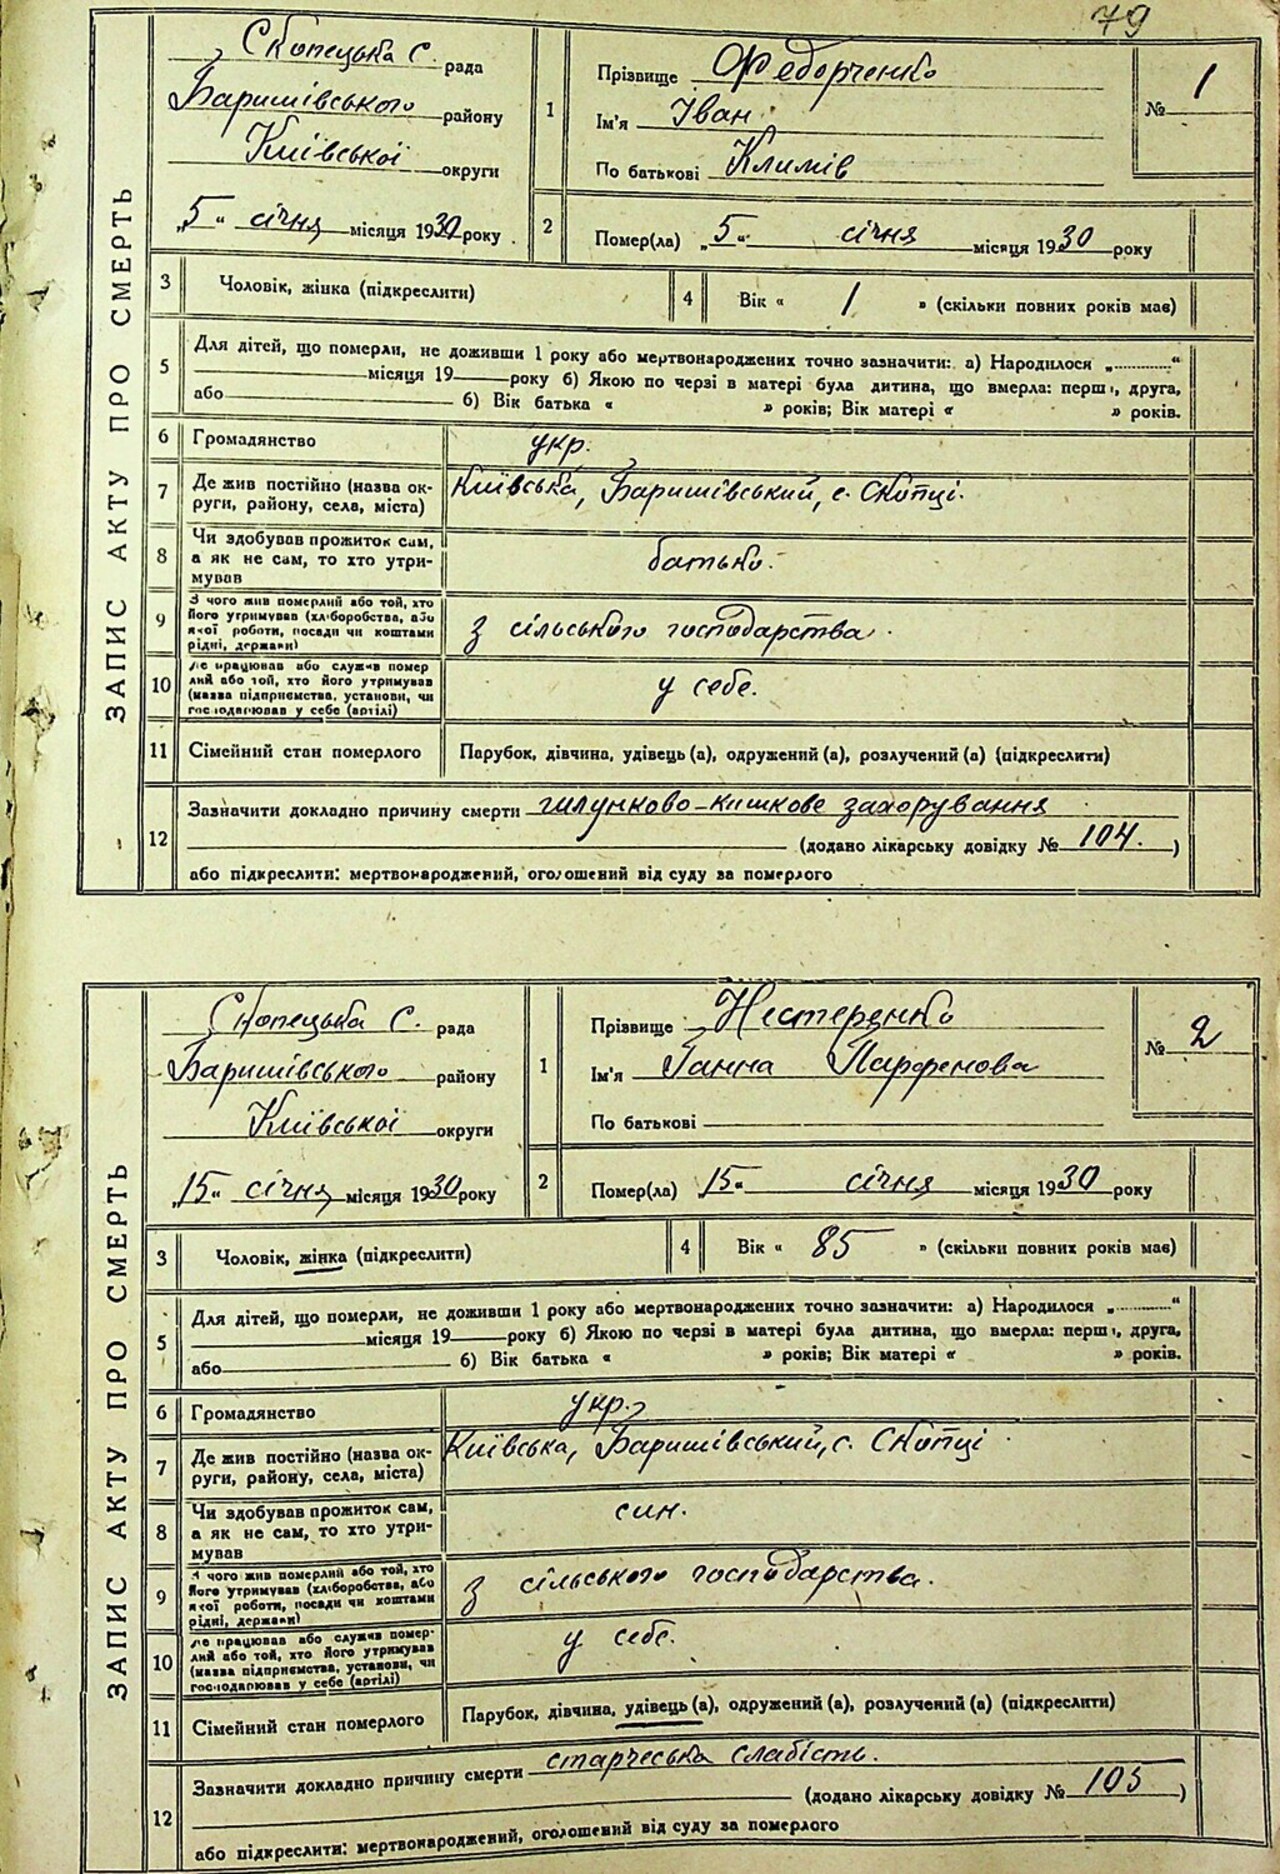 79
ЗАПИС АКТУ ПРО СМЕРТЬ
Скопецька С. рада
Баришівського району
Київської округи
„5“ січня місяця 1930 року
1 Прізвище Федорченко
Ім'я Іван
По батькові Климів
№ 1
2 Помер(ла) „5“ січня місяця 1930 року
3 Чоловік, жінка (підкреслити)
4 Вік « 1 » (скільки повних років має)
5 Для дітей, що померли, не доживши 1 року або мертвонароджених точно зазначити: а) Народилося „............“
місяця 19 року б) Якою по черзі в матері була дитина, що вмерла: перш, друга,
або б) Вік батька « » років; Вік матері « » років.
6 Громадянство укр.
7 Де жив постійно (назва ок-
руги, району, села, міста) Київська, Баришівський, с. Скопці.
8 Чи здобував прожиток сам,
а як не сам, то хто утри-
мував батько.
9 З чого жив померлий або той, хто
його утримував (хліборобства, або
якої роботи, посади чи коштами
рідні, держави) з сільського господарства.
10 Де працював або служив помер
лий або той, хто його утримував
(назва підприємства, установи, чи
господарював у себе (артілі) у себе.
11 Сімейний стан померлого Парубок, дівчина, удівець (а), одружений (а), розлучений (а) (підкреслити)
12 Зазначити докладно причину смерти шлунково-кишкове захорування
(додано лікарську довідку № 104. )
або підкреслити: мертвонароджений, оголошений від суду за померлого
ЗАПИС АКТУ ПРО СМЕРТЬ
Скопецька С. рада
Баришівського району
Київської округи
„15“ січня місяця 1930 року
1 Прізвище Нестеренко
Ім'я Ганна Парфенова
По батькові
№ 2
2 Помер(ла) 15“ січня місяця 1930 року
3 Чоловік, жінка (підкреслити)
4 Вік « 85 » (скільки повних років має)
5 Для дітей, що померли, не доживши 1 року або мертвонароджених точно зазначити: а) Народилося „............“
місяця 19 року б) Якою по черзі в матері була дитина, що вмерла: перш, друга,
або б) Вік батька « » років; Вік матері « » років.
6 Громадянство укр.
7 Де жив постійно (назва ок-
руги, району, села, міста) Київська, Баришівський, с. Скопці
8 Чи здобував прожиток сам,
а як не сам, то хто утри-
мував син.
9 З чого жив померлий або той, хто
його утримував (хліборобства, або
якої роботи, посади чи коштами
рідні, держави) з сільського господарства.
10 Де працював або служив помер-
лий або той, хто його утримував
(назва підприємства, установи, чи
господарював у себе (артілі) у себе.
11 Сімейний стан померлого Парубок, дівчина, удівець (а), одружений (а), розлучений (а) (підкреслити)
12 Зазначити докладно причину смерти старчеська слабість.
(додано лікарську довідку № 105 )
або підкреслити: мертвонароджений, оголошений від суду за померлого